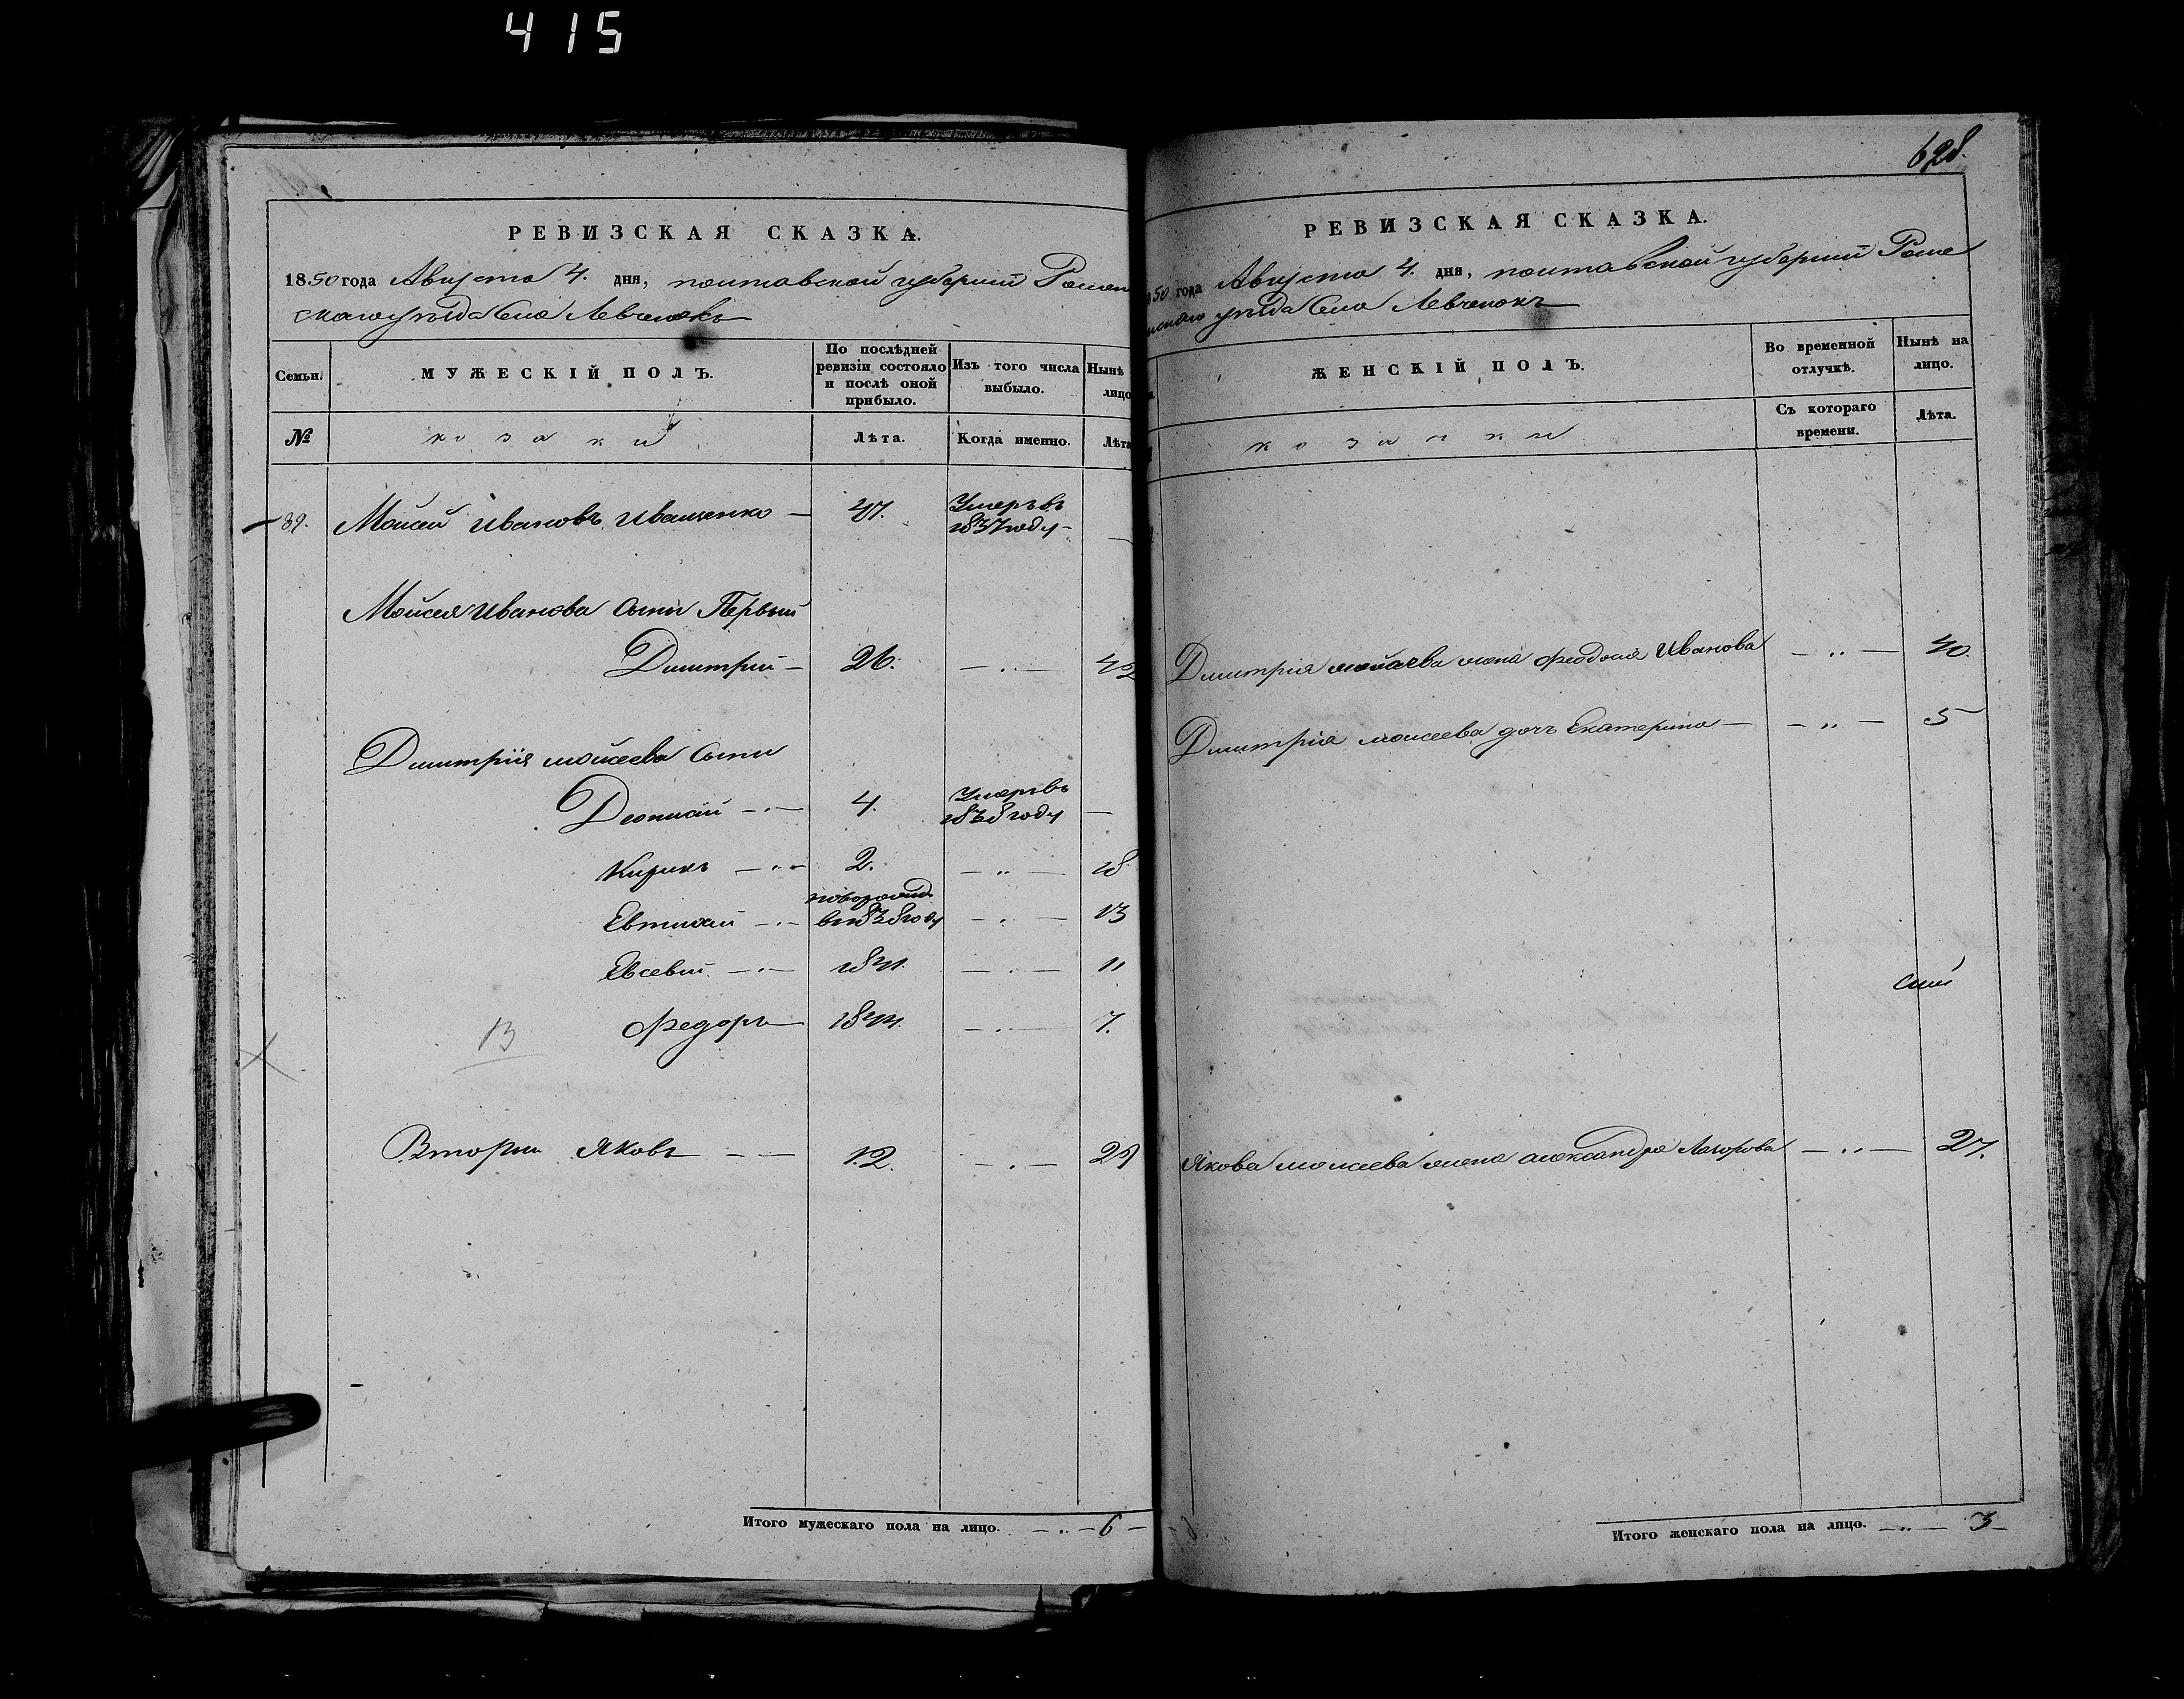 415
РЕВИЗСКАЯ СКАЗКА.
1850 года Августа 4. дня, полтавской губернии Ромен
скаго уѣзда Села Левченокъ
Семьи.
МУЖЕСКІЙ ПОЛЪ.
По послѣдней ревизіи состояло и послѣ оной прибыло.
Изъ того числа выбыло.
Нынѣ лицо
№
козаки
Лѣта.
Когда именно.
Лѣта
89. Моисей Ивановъ Иващенко — 47. Умеръ въ 1837 году —
Моисея Иванова Сыны Первый
Димитрий — 26. — 42
Димитрія моисеева Сыны
4. Умеръ въ году —
Кирикъ — 2. — 18
новорожд.
Евтихий — в 1838 году — 13
Евсевий — 1841. — 11
Федоръ — 1844. — 7.
13
Вторый Яковъ — 12. — 29
Итого мужескаго пола на лицо. — 6 —
628.
РЕВИЗСКАЯ СКАЗКА.
50 года Августа 4. дня, полтавской губернии Роме
нскаго уѣзда Села Левченокъ
ЖЕНСКІЙ ПОЛЪ.
Во временной отлучкѣ.
Нынѣ на лицо.
козачки
Съ котораго времени.
Лѣта.
Димитрія моисеева жена Феодосия Иванова — 40.
Димитрія моисеева дочь Екатерина — 5
Якова моисеева жена александра — 27.
Итого женскаго пола на лицо. — 3 —